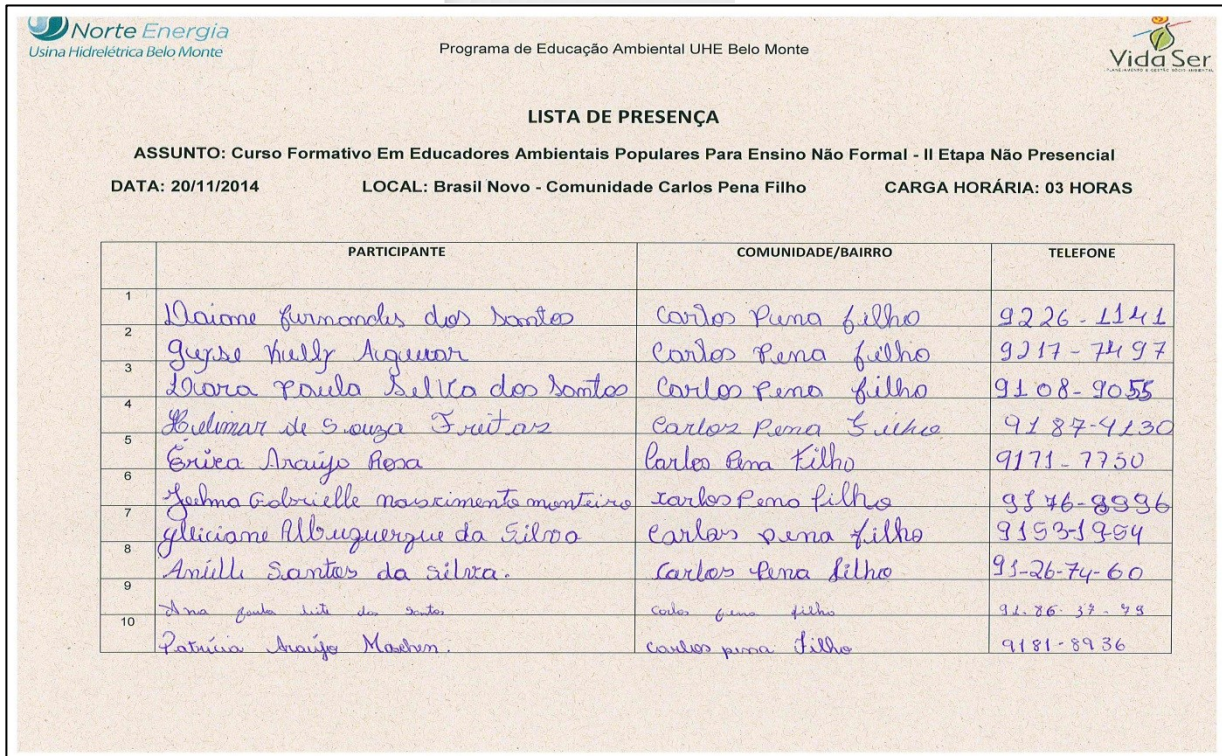 Norte Energia
Usina Hidrelétrica Belo Monte
Programa de Educação Ambiental UHE Belo Monte
Vida Ser
LISTA DE PRESENÇA
ASSUNTO: Curso Formativo Em Educadores Ambientais Populares Para Ensino Não Formal - II Etapa Não Presencial
DATA: 20/11/2014 LOCAL: Brasil Novo - Comunidade Carlos Pena Filho CARGA HORÁRIA: 03 HORAS
PARTICIPANTE COMUNIDADE/BAIRRO TELEFONE
1 Daiane Furnandes dos Santos Carlos Pena filho 9226-1141
2 Kelly Carlos Pena filho 9217-7497
3 paula dos Santos Carlos Pena filho 9108-9055
4 de Souza Freitas Carlos Pena Filho 9187-4130
5 Érica Araújo Rosa Carlos Pena Filho 9171-7750
6 Gabrielle nascimento monteiro carlos Pena filho
7 Gliciane Albuquerque da Silva Carlos pena filho
8 Santos da silva. Carlos Pena filho 91-26-74-60
9 Ana paula leite dos Santos Carlos pena filho
10 Patrícia Araújo carlos pena Filho 9181-8936